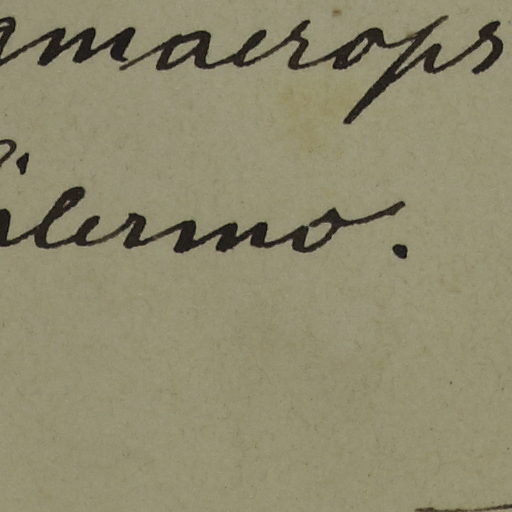 amaerops
alermo.